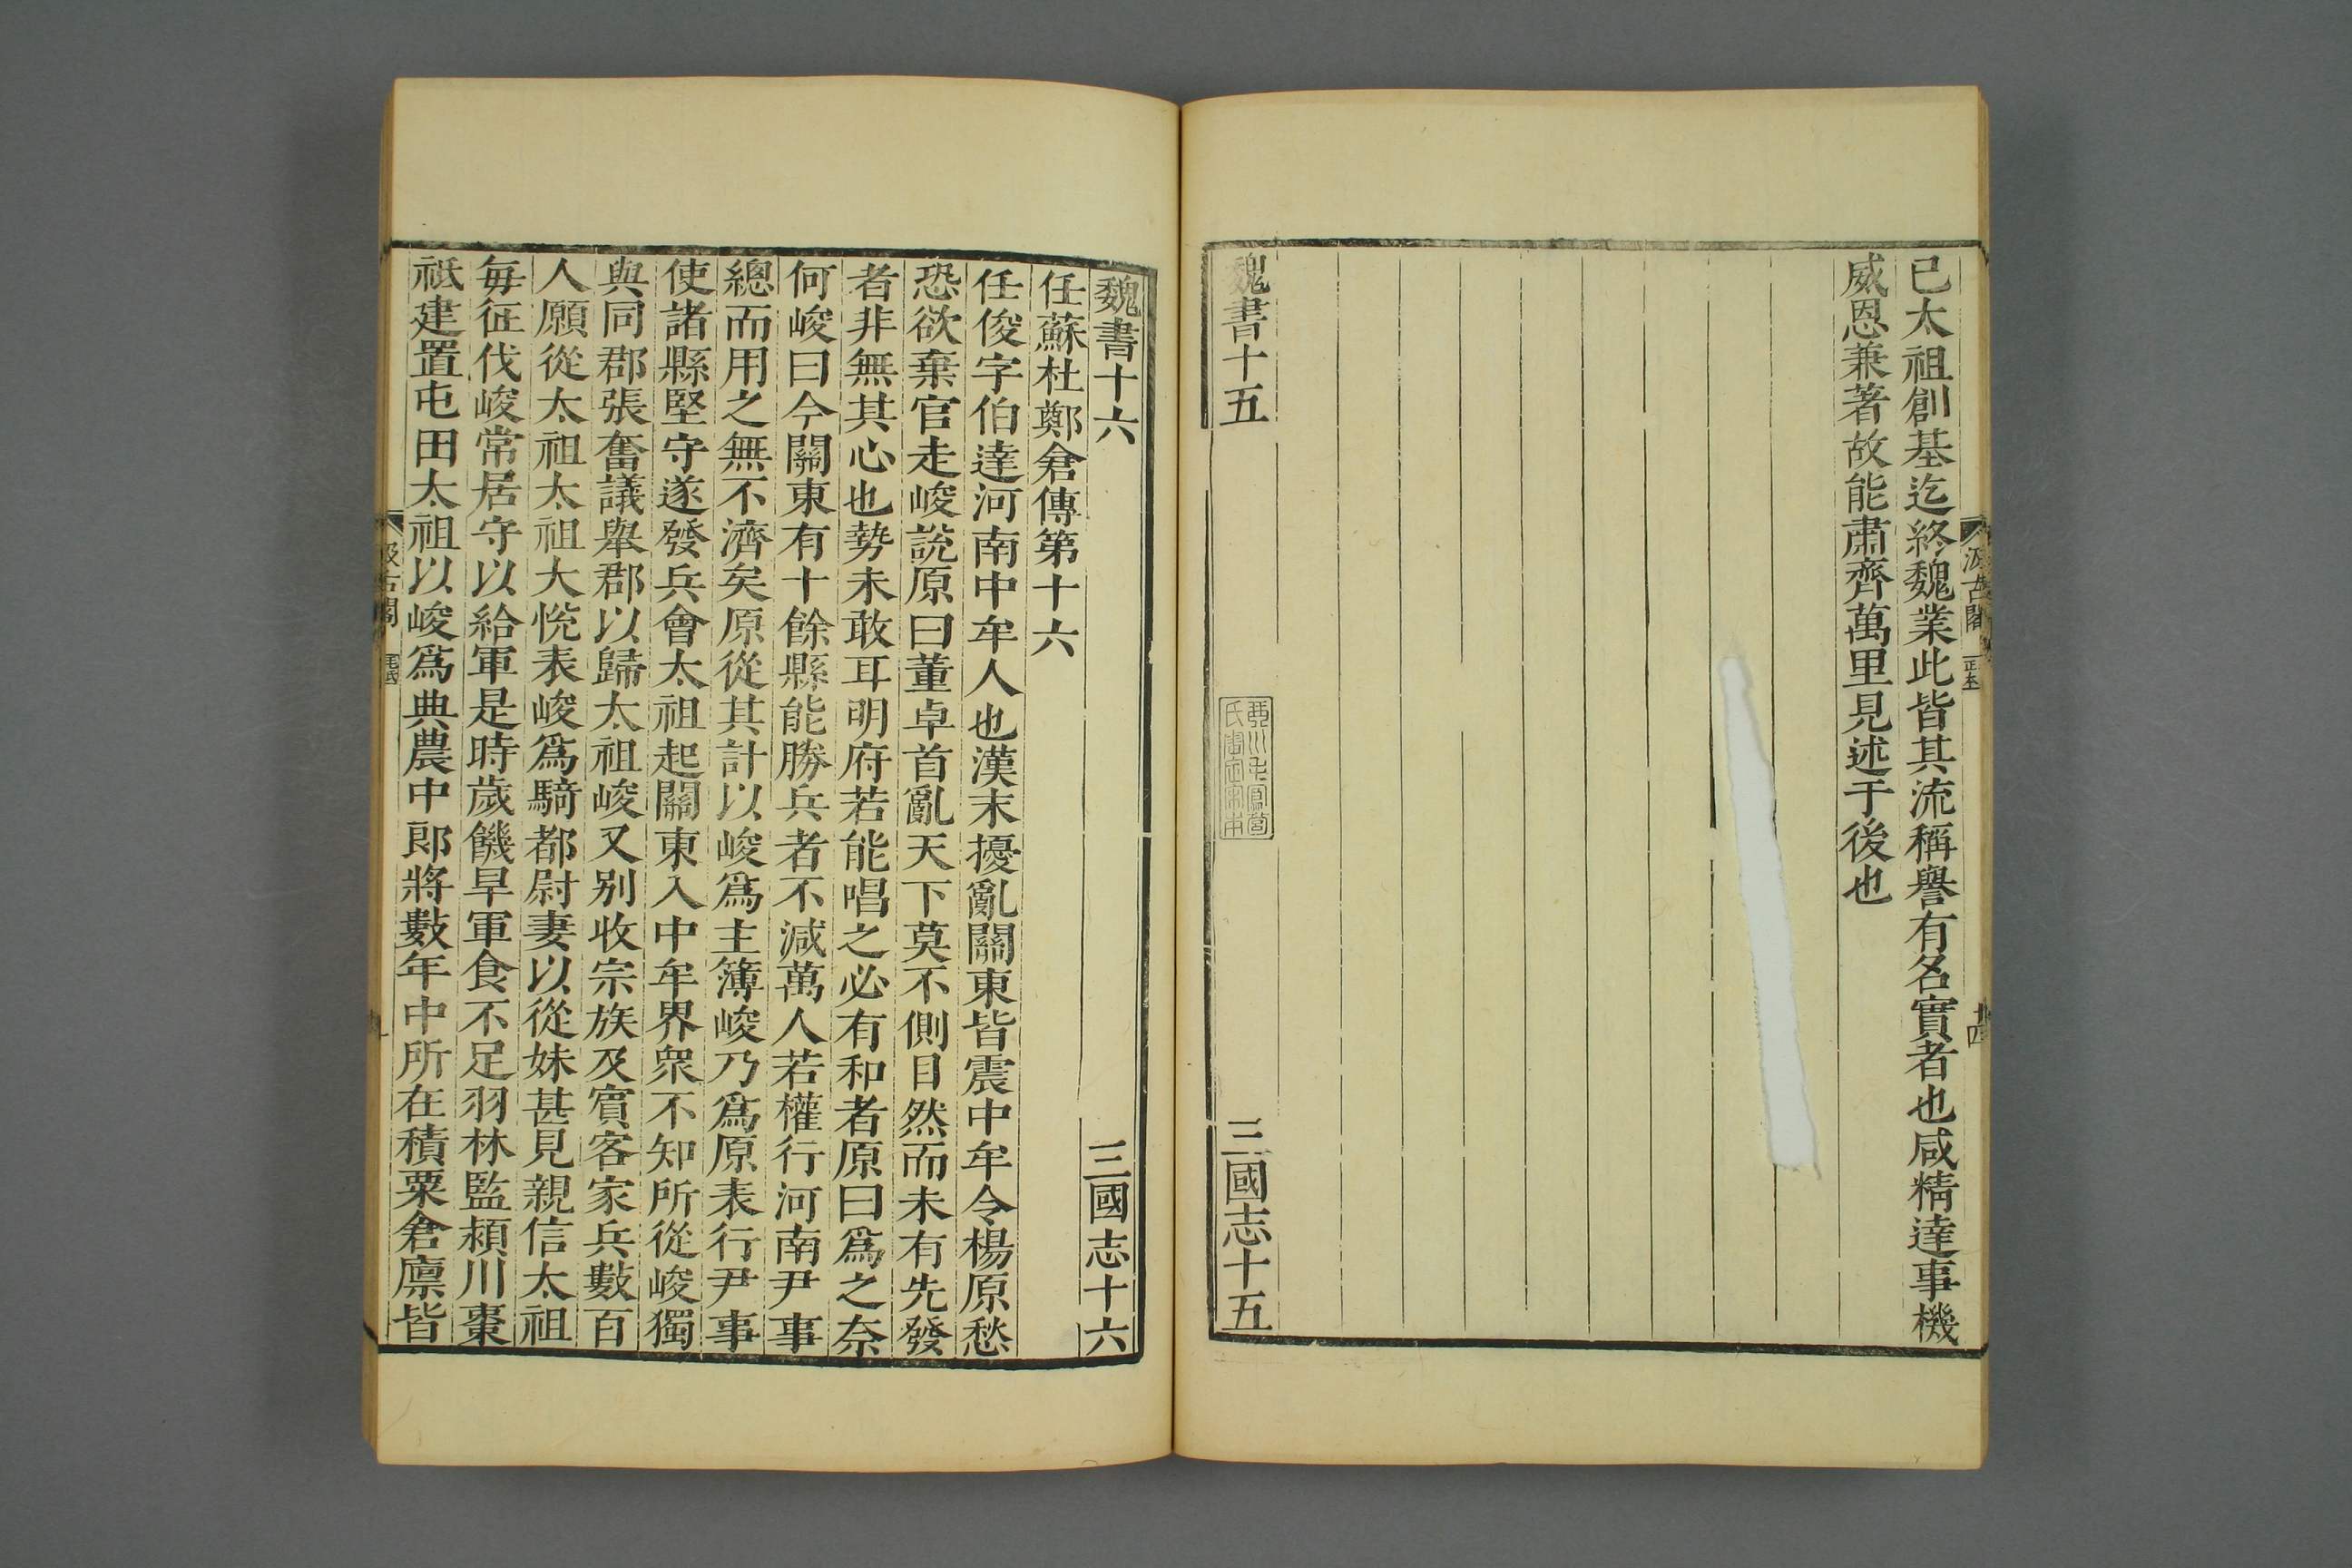 已太祖創基迄終魏業此皆其流稱譽有名實者也咸精達事機
威恩兼著故能肅齊萬里見述于後也
魏書十五
三國志十五
魏書十六
三國志十六
任蘇杜鄭倉傳第十六
任俊字伯達河南中牟人也漢末擾亂關東皆震中牟令楊原愁
恐欲棄官走峻說原曰董卓首亂天下莫不側目然而未有先發
者非無其心也勢未敢耳明府若能唱之必有和者原曰爲之奈
何峻曰今關東有十餘縣能勝兵者不減萬人若權行河南尹事
總而用之無不濟矣原從其計以峻爲主簿峻乃爲原表行尹事
使諸縣堅守遂發兵會太祖起關東入中牟界衆不知所從峻獨
與同郡張奮議舉郡以歸太祖峻又別收宗族及賓客家兵數百
人願從太祖太祖大悅表峻爲騎都尉妻以從妹甚見親信太祖
每征伐峻常居守以給軍是時歲饑旱軍食不足羽林監潁川棗
祗建置屯田太祖以峻爲典農中郎將數年中所在積粟倉廩皆
汲古閣